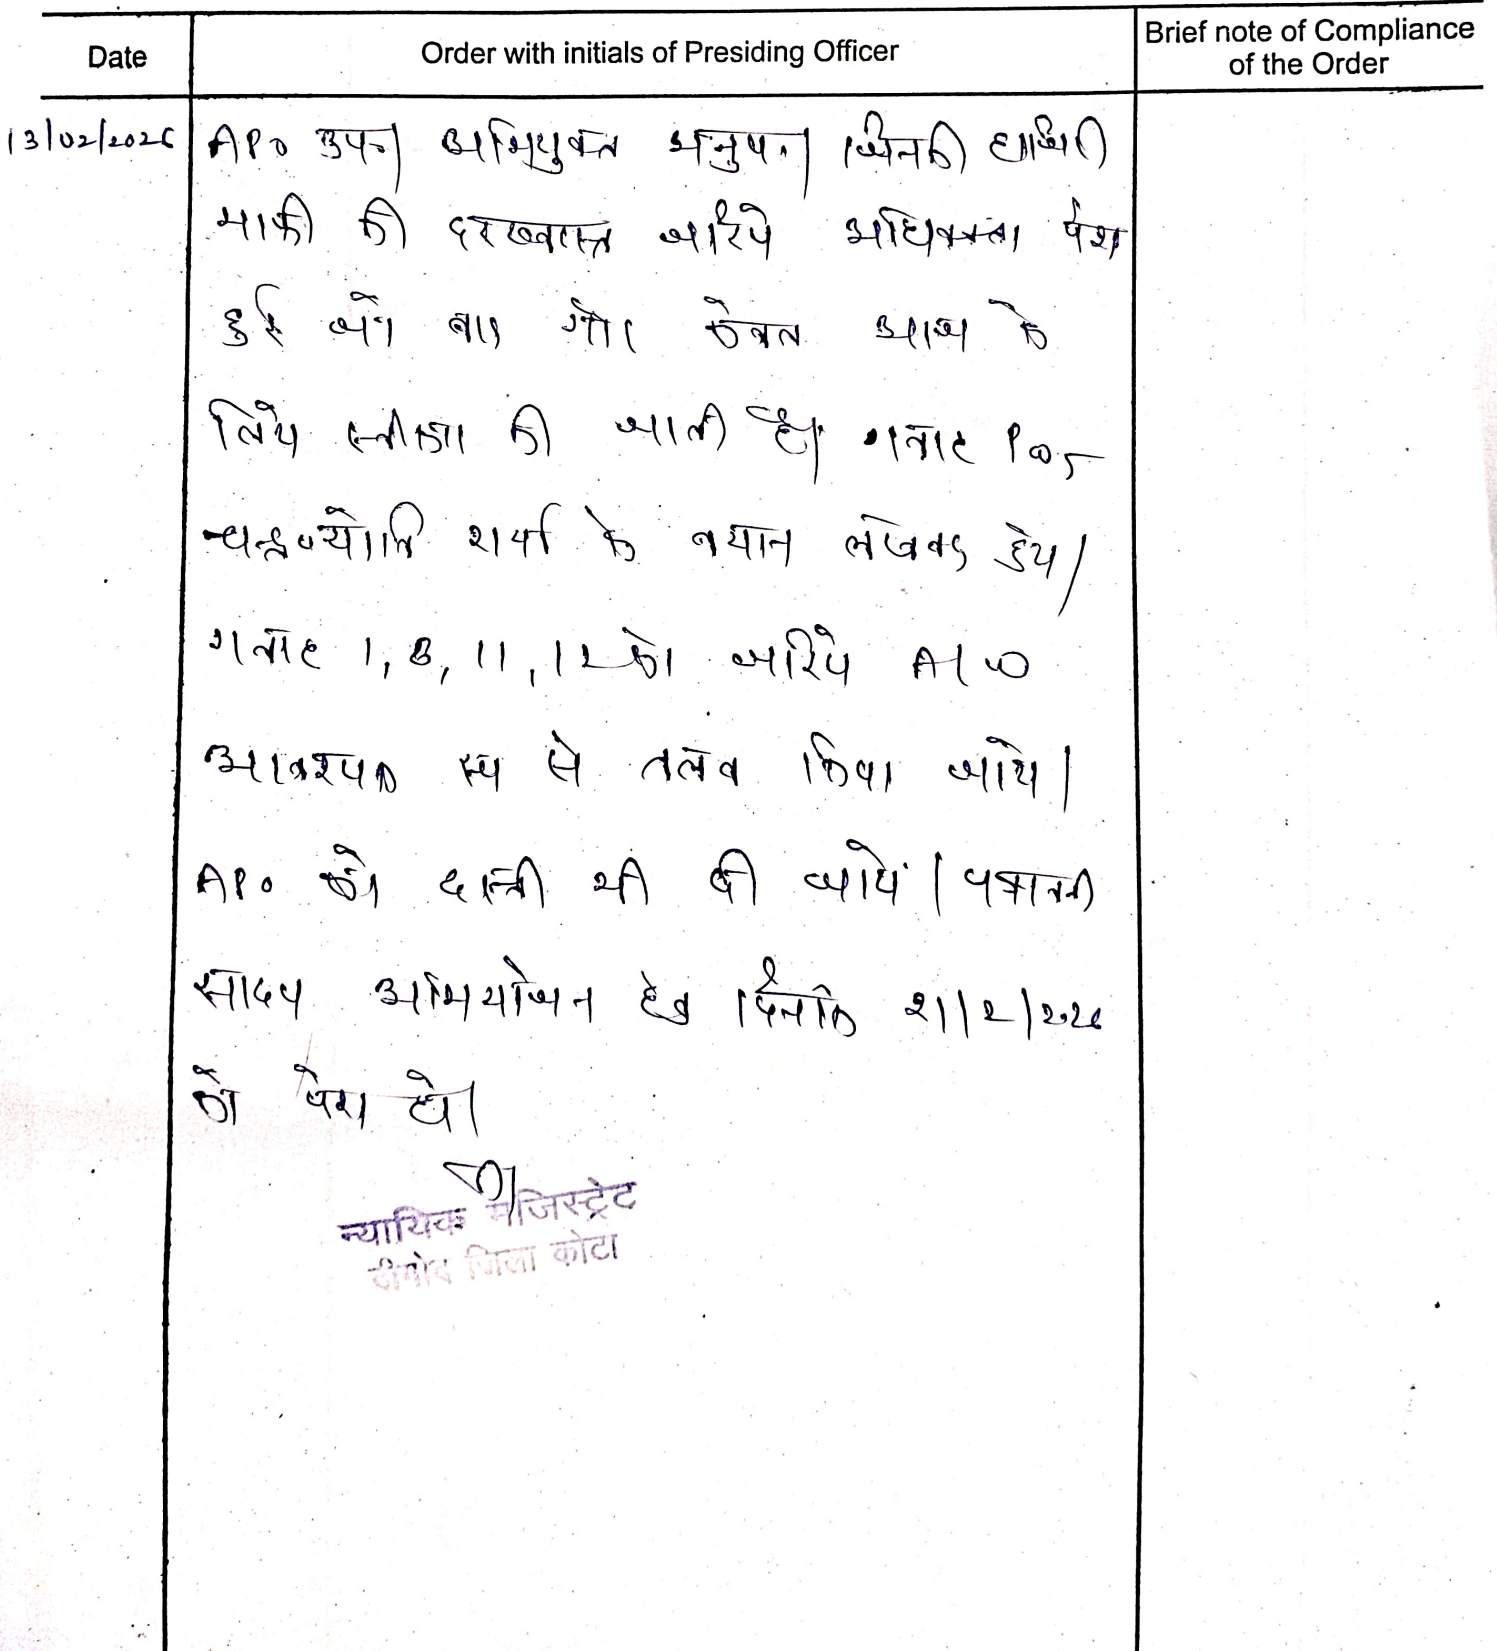 Date
Order with initials of Presiding Officer
Brief note of Compliance
of the Order
13/02/2026
APO उप० अभियुक्त अनुप० जिनकी हाजिरी
माफी की दरख्वास्त जरिये अधिवक्ता पेश
हुई जो बाद गौर केवल आज के
लिये स्वीकार की जाती है। गवाह PW5
चन्द्रज्योति शर्मा के बयान लेखबद्ध हुये।
गवाह 1, 8, 11, 12 को जरिये A/W
आवश्यक रूप से तलब किया जाये।
APO को दस्ती भी दी जाये। पत्रावली
साक्ष्य अभियोजन हेतु दिनांक 21/2/2026
को पेश हो।
न्यायिक मजिस्ट्रेट
दीगोद जिला कोटा